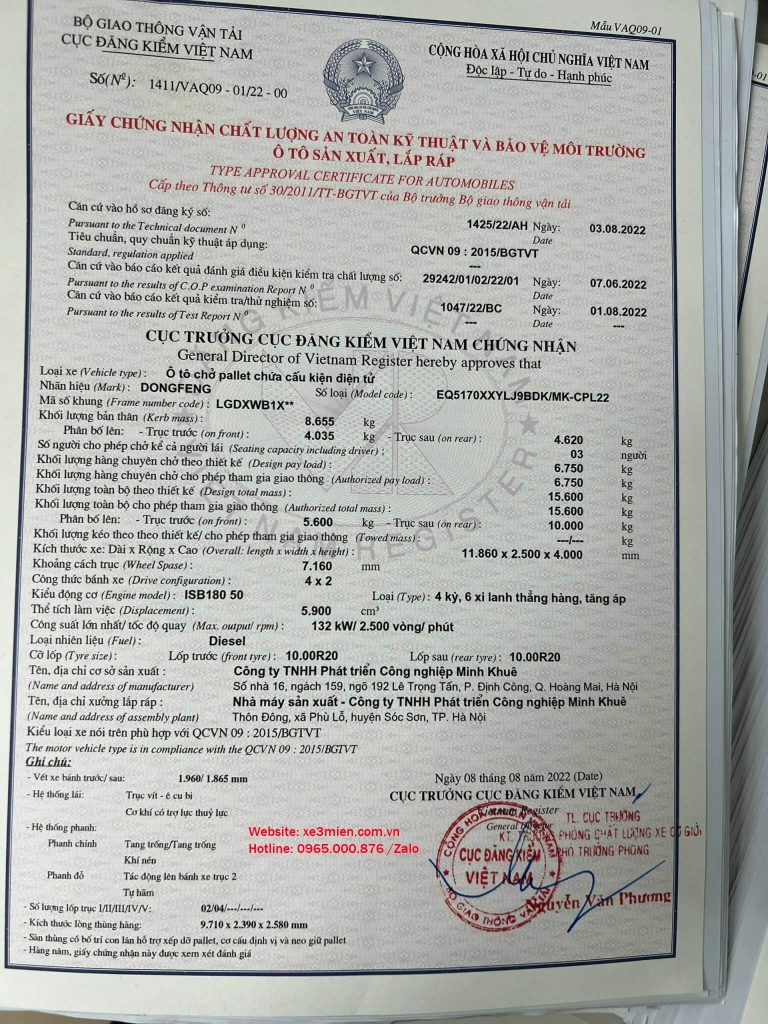 Mẫu VAQ09-01
BỘ GIAO THÔNG VẬN TẢI
CỤC ĐĂNG KIỂM VIỆT NAM
CỘNG HÒA XÃ HỘI CHỦ NGHĨA VIỆT NAM
Độc lập - Tự do - Hạnh phúc
Số(Nº): 1411/VAQ09 - 01/22 - 00
GIẤY CHỨNG NHẬN CHẤT LƯỢNG AN TOÀN KỸ THUẬT VÀ BẢO VỆ MÔI TRƯỜNG
Ô TÔ SẢN XUẤT, LẮP RÁP
TYPE APPROVAL CERTIFICATE FOR AUTOMOBILES
Cấp theo Thông tư số 30/2011/TT-BGTVT của Bộ trưởng Bộ giao thông vận tải
Căn cứ vào hồ sơ đăng ký số: 1425/22/AH Ngày: 03.08.2022
Pursuant to the Technical document N º Date
Tiêu chuẩn, quy chuẩn kỹ thuật áp dụng: QCVN 09 : 2015/BGTVT
Standard, regulation applied ---
Căn cứ vào báo cáo kết quả đánh giá điều kiện kiểm tra chất lượng số: 29242/01/02/22/01 Ngày: 07.06.2022
Pursuant to the results of C.O.P examination Report N º Date
Căn cứ vào báo cáo kết quả kiểm tra/thử nghiệm số: 1047/22/BC Ngày: 01.08.2022
Pursuant to the results of Test Report N º --- Date ---
CỤC TRƯỞNG CỤC ĐĂNG KIỂM VIỆT NAM CHỨNG NHẬN
General Director of Vietnam Register hereby approves that
Loại xe (Vehicle type) : Ô tô chở pallet chứa cấu kiện điện tử
Nhãn hiệu (Mark) : DONGFENG Số loại (Model code) : EQ5170XXYLJ9BDK/MK-CPL22
Mã số khung (Frame number code) : LGDXWB1X**
Khối lượng bản thân (Kerb mass) : 8.655 kg
Phân bố lên: - Trục trước (on front) : 4.035 kg - Trục sau (on rear) : 4.620 kg
Số người cho phép chở kể cả người lái (Seating capacity including driver) : 03 người
Khối lượng hàng chuyên chở theo thiết kế (Design pay load) : 6.750 kg
Khối lượng hàng chuyên chở cho phép tham gia giao thông (Authorized pay load) : 6.750 kg
Khối lượng toàn bộ theo thiết kế (Design total mass) : 15.600 kg
Khối lượng toàn bộ cho phép tham gia giao thông (Authorized total mass) : 15.600 kg
Phân bố lên: - Trục trước (on front) : 5.600 kg - Trục sau (on rear) : 10.000 kg
Khối lượng kéo theo theo thiết kế/ cho phép tham gia giao thông (Towed mass) : ---/--- kg
Kích thước xe: Dài x Rộng x Cao (Overall: length x width x height) : 11.860 x 2.500 x 4.000 mm
Khoảng cách trục (Wheel Spase) : 7.160 mm
Công thức bánh xe (Drive configuration) : 4 x 2
Kiểu động cơ (Engine model) : ISB180 50 Loại (Type) : 4 kỳ, 6 xi lanh thẳng hàng, tăng áp
Thể tích làm việc (Displacement) : 5.900 cm³
Công suất lớn nhất/ tốc độ quay (Max. output/ rpm) : 132 kW/ 2.500 vòng/ phút
Loại nhiên liệu (Fuel) : Diesel
Cỡ lốp (Tyre size) : Lốp trước (front tyre) : 10.00R20 Lốp sau (rear tyre) : 10.00R20
Tên, địa chỉ cơ sở sản xuất : Công ty TNHH Phát triển Công nghiệp Minh Khuê
(Name and address of manufacturer) Số nhà 16, ngách 159, ngõ 192 Lê Trọng Tấn, P. Định Công, Q. Hoàng Mai, Hà Nội
Tên, địa chỉ xưởng lắp ráp : Nhà máy sản xuất - Công ty TNHH Phát triển Công nghiệp Minh Khuê
(Name and address of assembly plant) Thôn Đông, xã Phù Lỗ, huyện Sóc Sơn, TP. Hà Nội
Kiểu loại xe nói trên phù hợp với QCVN 09 : 2015/BGTVT
The motor vehicle type is in compliance with the QCVN 09 : 2015/BGTVT
Ghi chú:
- Vết xe bánh trước/ sau: 1.960/ 1.865 mm
Ngày 08 tháng 08 năm 2022 (Date)
- Hệ thống lái: Trục vít - ê cu bi
CỤC TRƯỞNG CỤC ĐĂNG KIỂM VIỆT NAM
Cơ khí có trợ lực thuỷ lực
TL. CỤC TRƯỞNG
- Hệ thống phanh:
Website: xe3mien.com.vn
Phanh chính Tang trống/Tang trống
Hotline: 0965.000.876 /Zalo
PHÓ TRƯỞNG PHÒNG
Khí nén
CỤC ĐĂNG KIỂM
VIỆT NAM
Phanh đỗ Tác động lên bánh xe trục 2
Tự hãm
Nguyễn Văn Phương
- Số lượng lốp trục I/II/III/IV/V: 02/04/---/---/---
- Kích thước lòng thùng hàng: 9.710 x 2.390 x 2.580 mm
- Sàn thùng có bố trí con lăn hỗ trợ xếp dỡ pallet, cơ cấu định vị và neo giữ pallet
- Hàng năm, giấy chứng nhận này được xem xét đánh giá